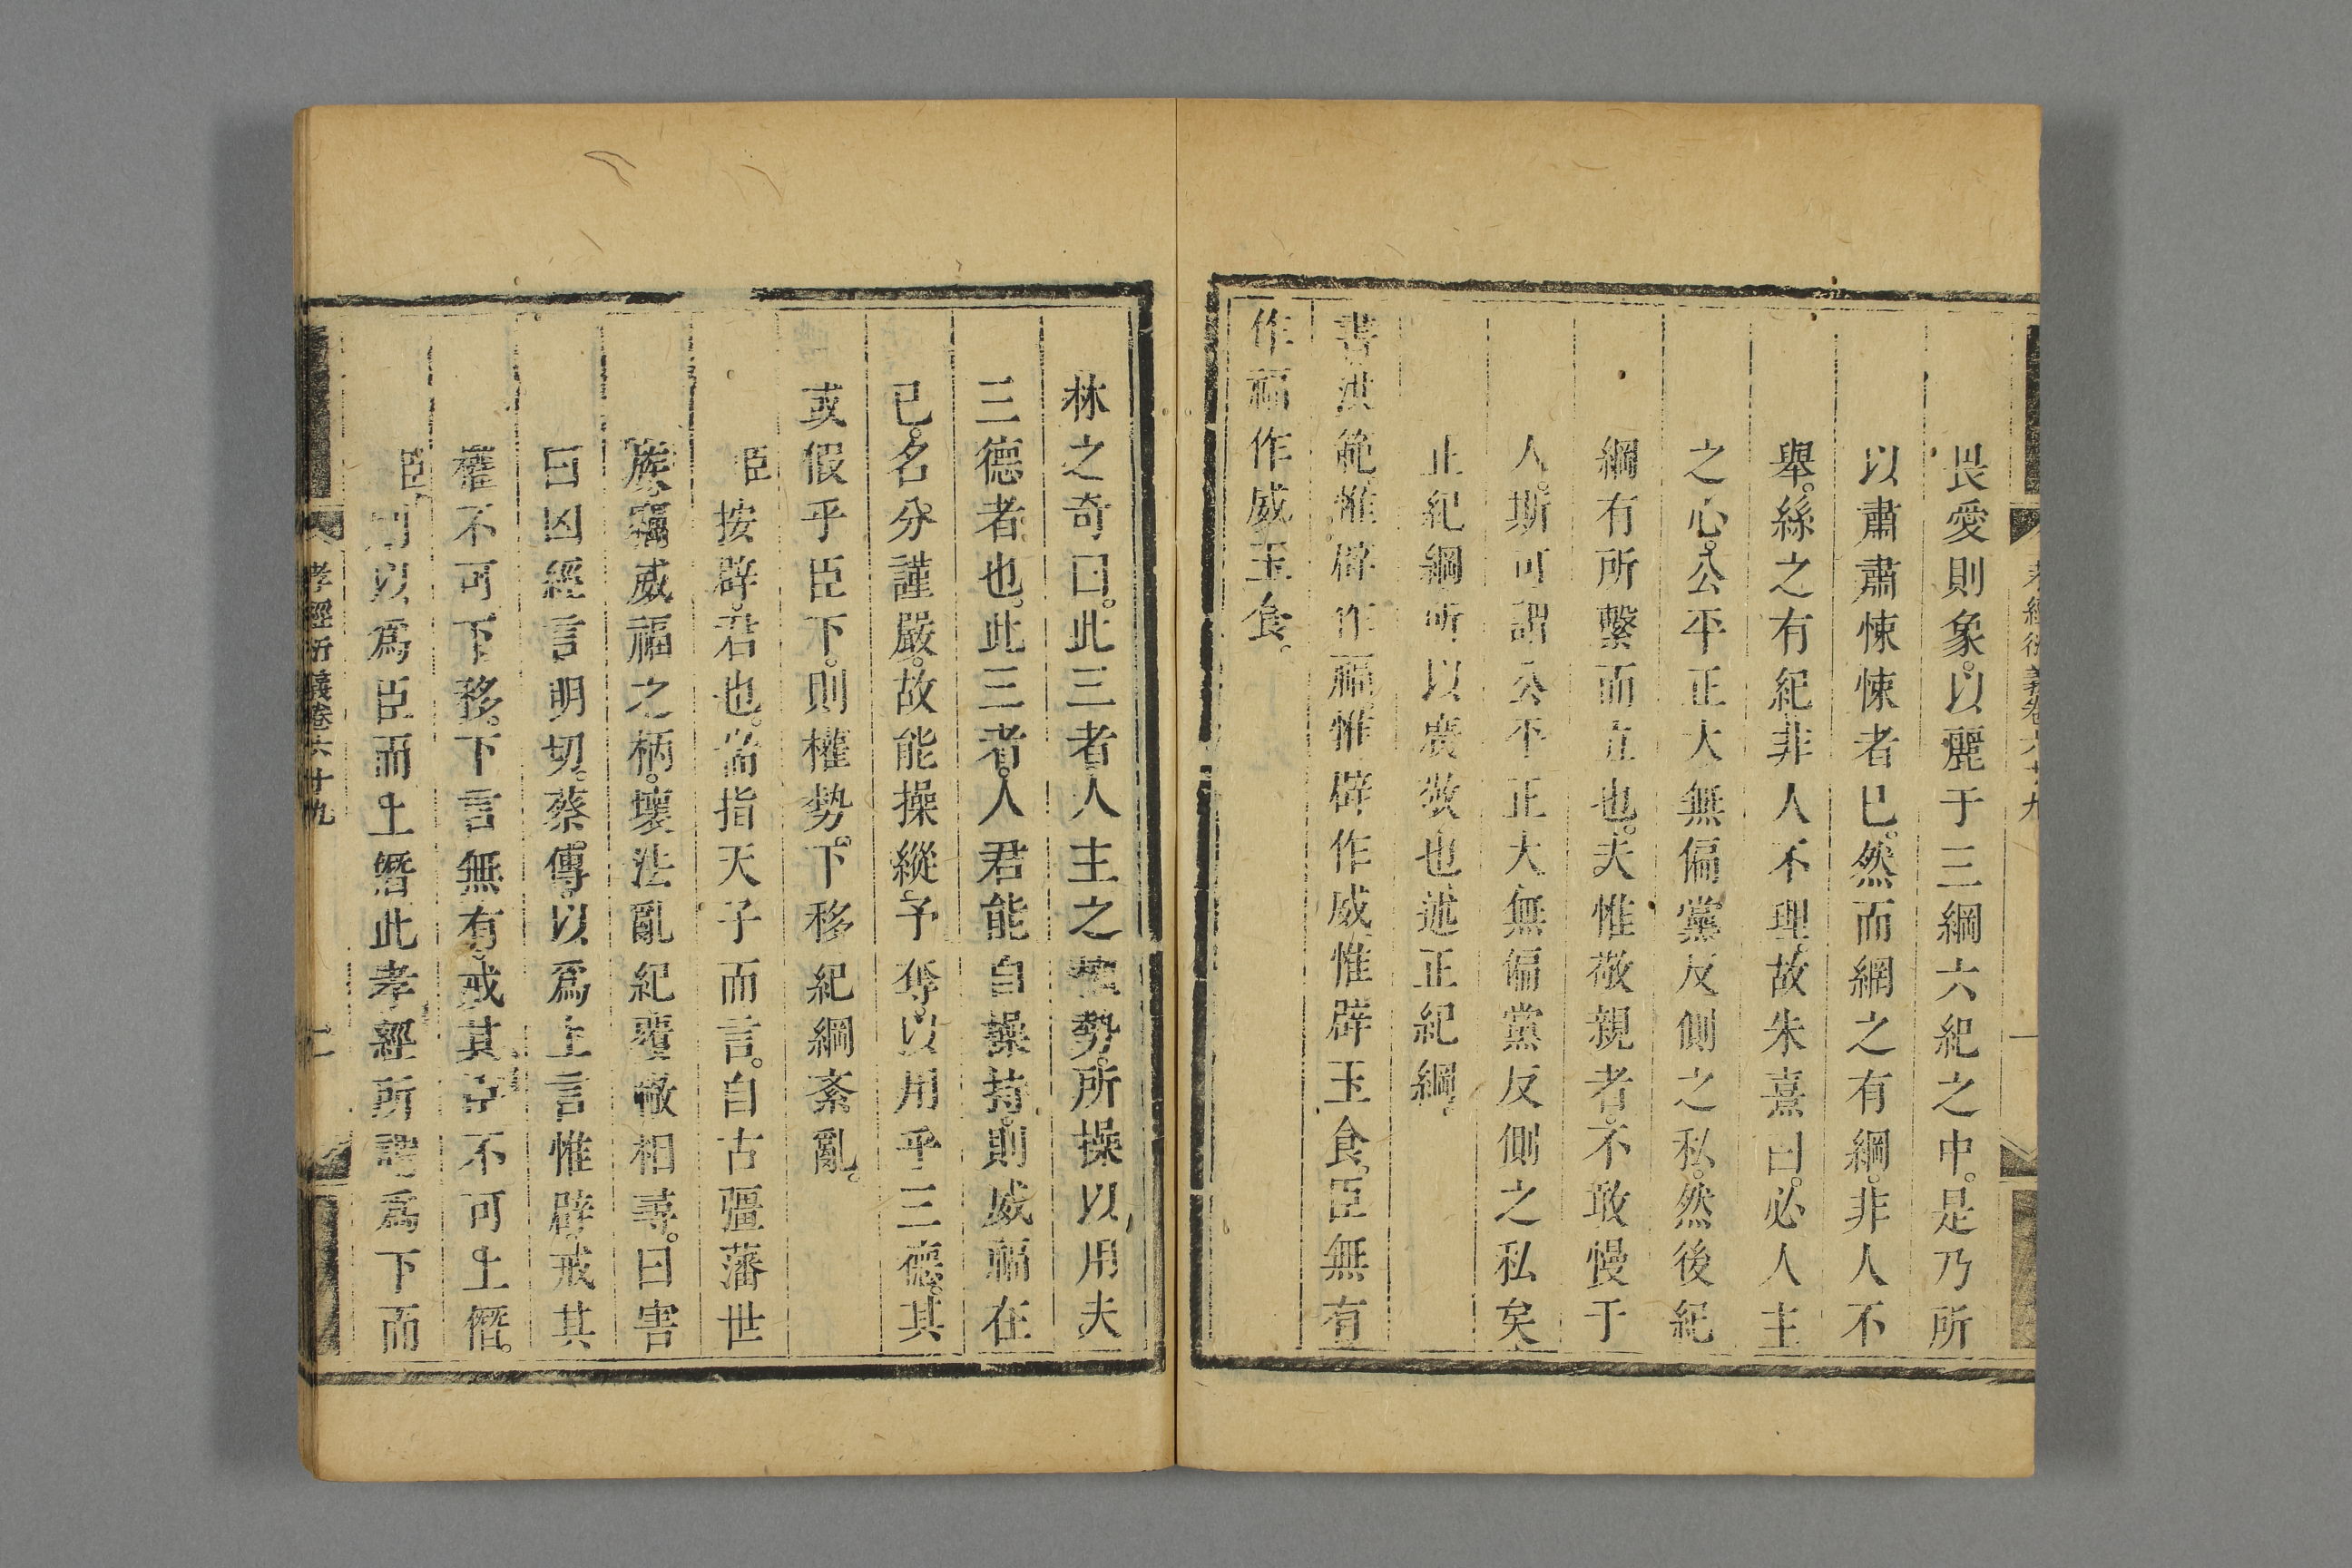 畏愛則象。以麗于三綱六紀之中。是乃所
以肅肅悚悚者已。然而網之有綱。非人不
舉。絲之有紀。非人不理。故朱熹曰。必人主
之心。公平正大無偏黨反側之私。然後紀
綱有所繫而立也。夫惟敬親者。不敢慢于
人。斯可謂公平正大無偏黨反側之私矣
止紀綱所以廣敬也述正紀綱。
書洪範。惟辟作福。惟辟作威。惟辟玉食。臣無有
作福作威玉食。
林之奇曰。此三者。人主之權勢。所操以用夫
三德者也。此三者。人君能自操持。則威福在
已。名分謹嚴。故能操縱予奪。以用乎三德。其
或假乎臣下。則權勢。下移紀綱紊亂。
臣按辟。君也。葢指天子而言。自古彊藩世
族。竊威福之柄。壞法亂紀。覆敝相尋。曰害
曰凶。經言明切。蔡傳。以爲上言惟辟。戒其
權不可下移。下言無有。戒其臣不可上僭。
臣則以爲臣而上僭。此孝經所謂爲下而
孝經衍義卷六十九